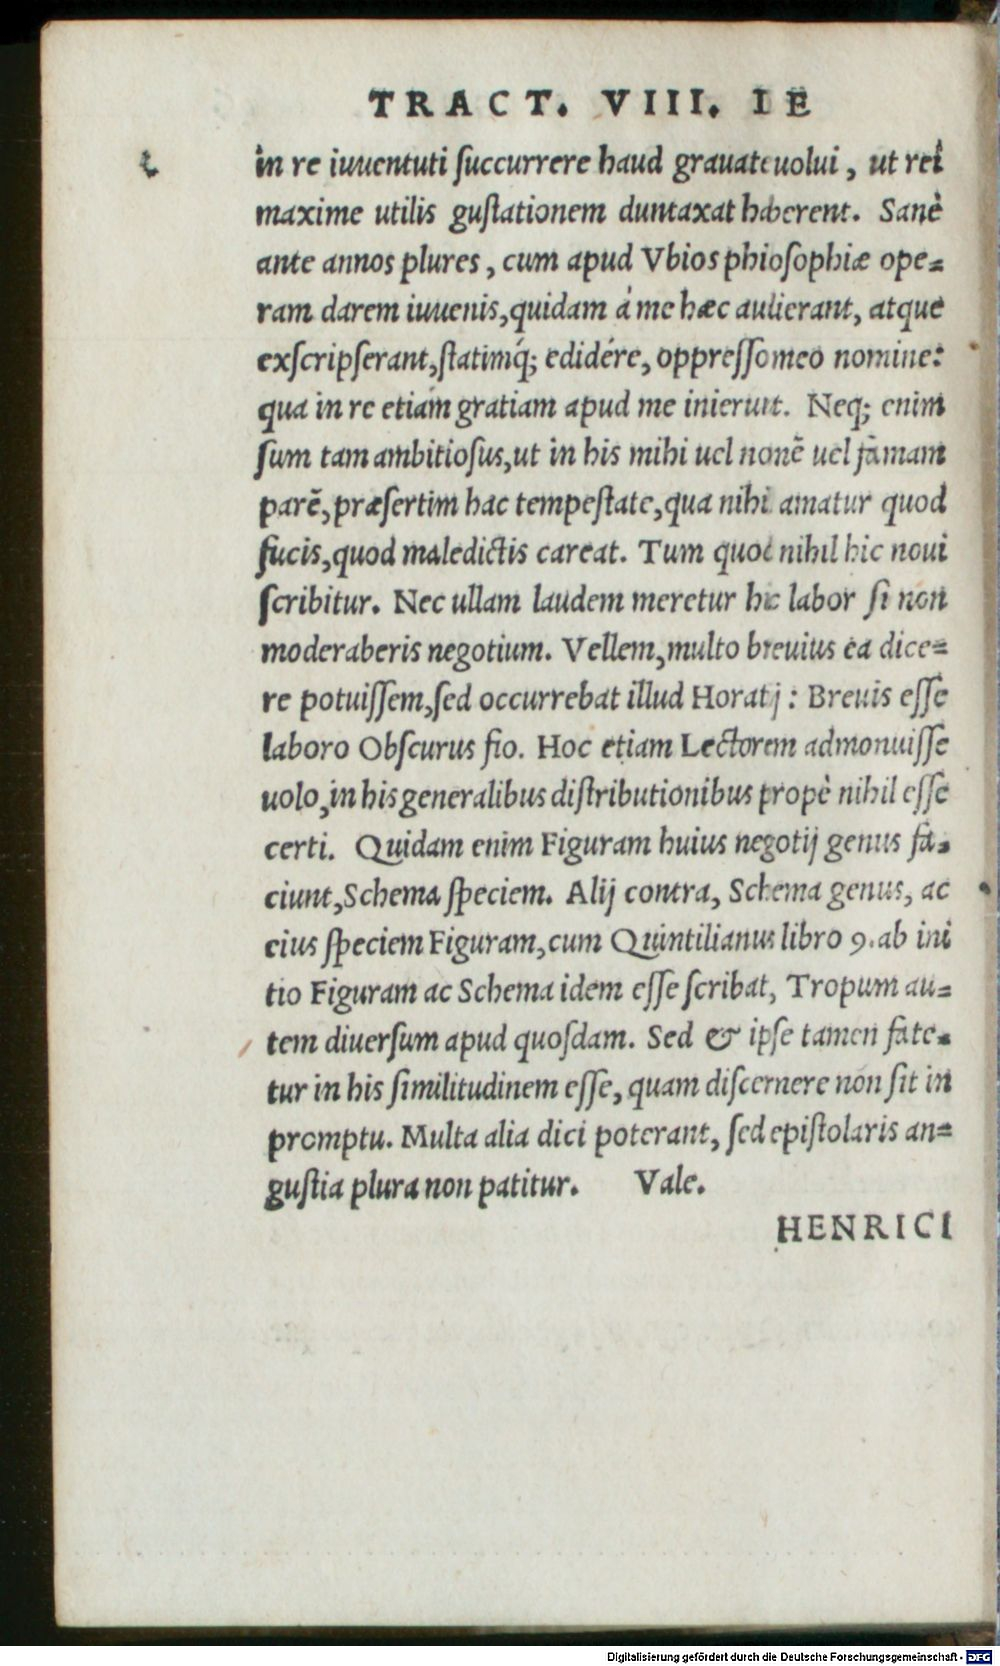 TRACT. VIII. IE
in re iuuentuti ſuccurrere haud grauate uolui, ut rei
maxime utilis guſtationem duntaxat haberent. Sanè
ante annos plures, cum apud Vbios phioſophiæ ope=
ram darem iuuenis, quidam à me hæc audierant, atque
exſcripſerant, ſtatimq́; edidére, oppreſſo meo nomine:
qua in re etiam gratiam apud me inierunt. Neq; enim
ſum tam ambitioſus, ut in his mihi uel nomē uel fámam
parē, præſertim hac tempeſtate, qua nihil amatur quod
fucis, quod maledictis careat. Tum quod nihil hic noui
ſcribitur. Nec ullam laudem meretur hic labor ſi non
moderaberis negotium. Vellem, multo breuius ea dice=
re potuiſſem, ſed occurrebat illud Horatij : Breuis eſſe
laboro Obſcurus fio. Hoc etiam Lectorem admonuiſſe
uolo, in his generalibus diſtributionibus propè nihil eſſe
certi. Quidam enim Figuram huius negotij genus fa=
ciunt, Schema ſpeciem. Alij contra, Schema genus, ac
eius ſpeciem Figuram, cum Quintilianus libro 9. ab ini
tio Figuram ac Schema idem eſſe ſcribat, Tropum au=
tem diuerſum apud quoſdam. Sed & ipſe tamen fate=
tur in his ſimilitudinem eſſe, quam diſcernere non ſit in
promptu. Multa alia dici poterant, ſed epiſtolaris an=
guſtia plura non patitur. Vale.
HENRICI
Digitalisierung gefördert durch die Deutsche Forschungsgemeinschaft - DFG